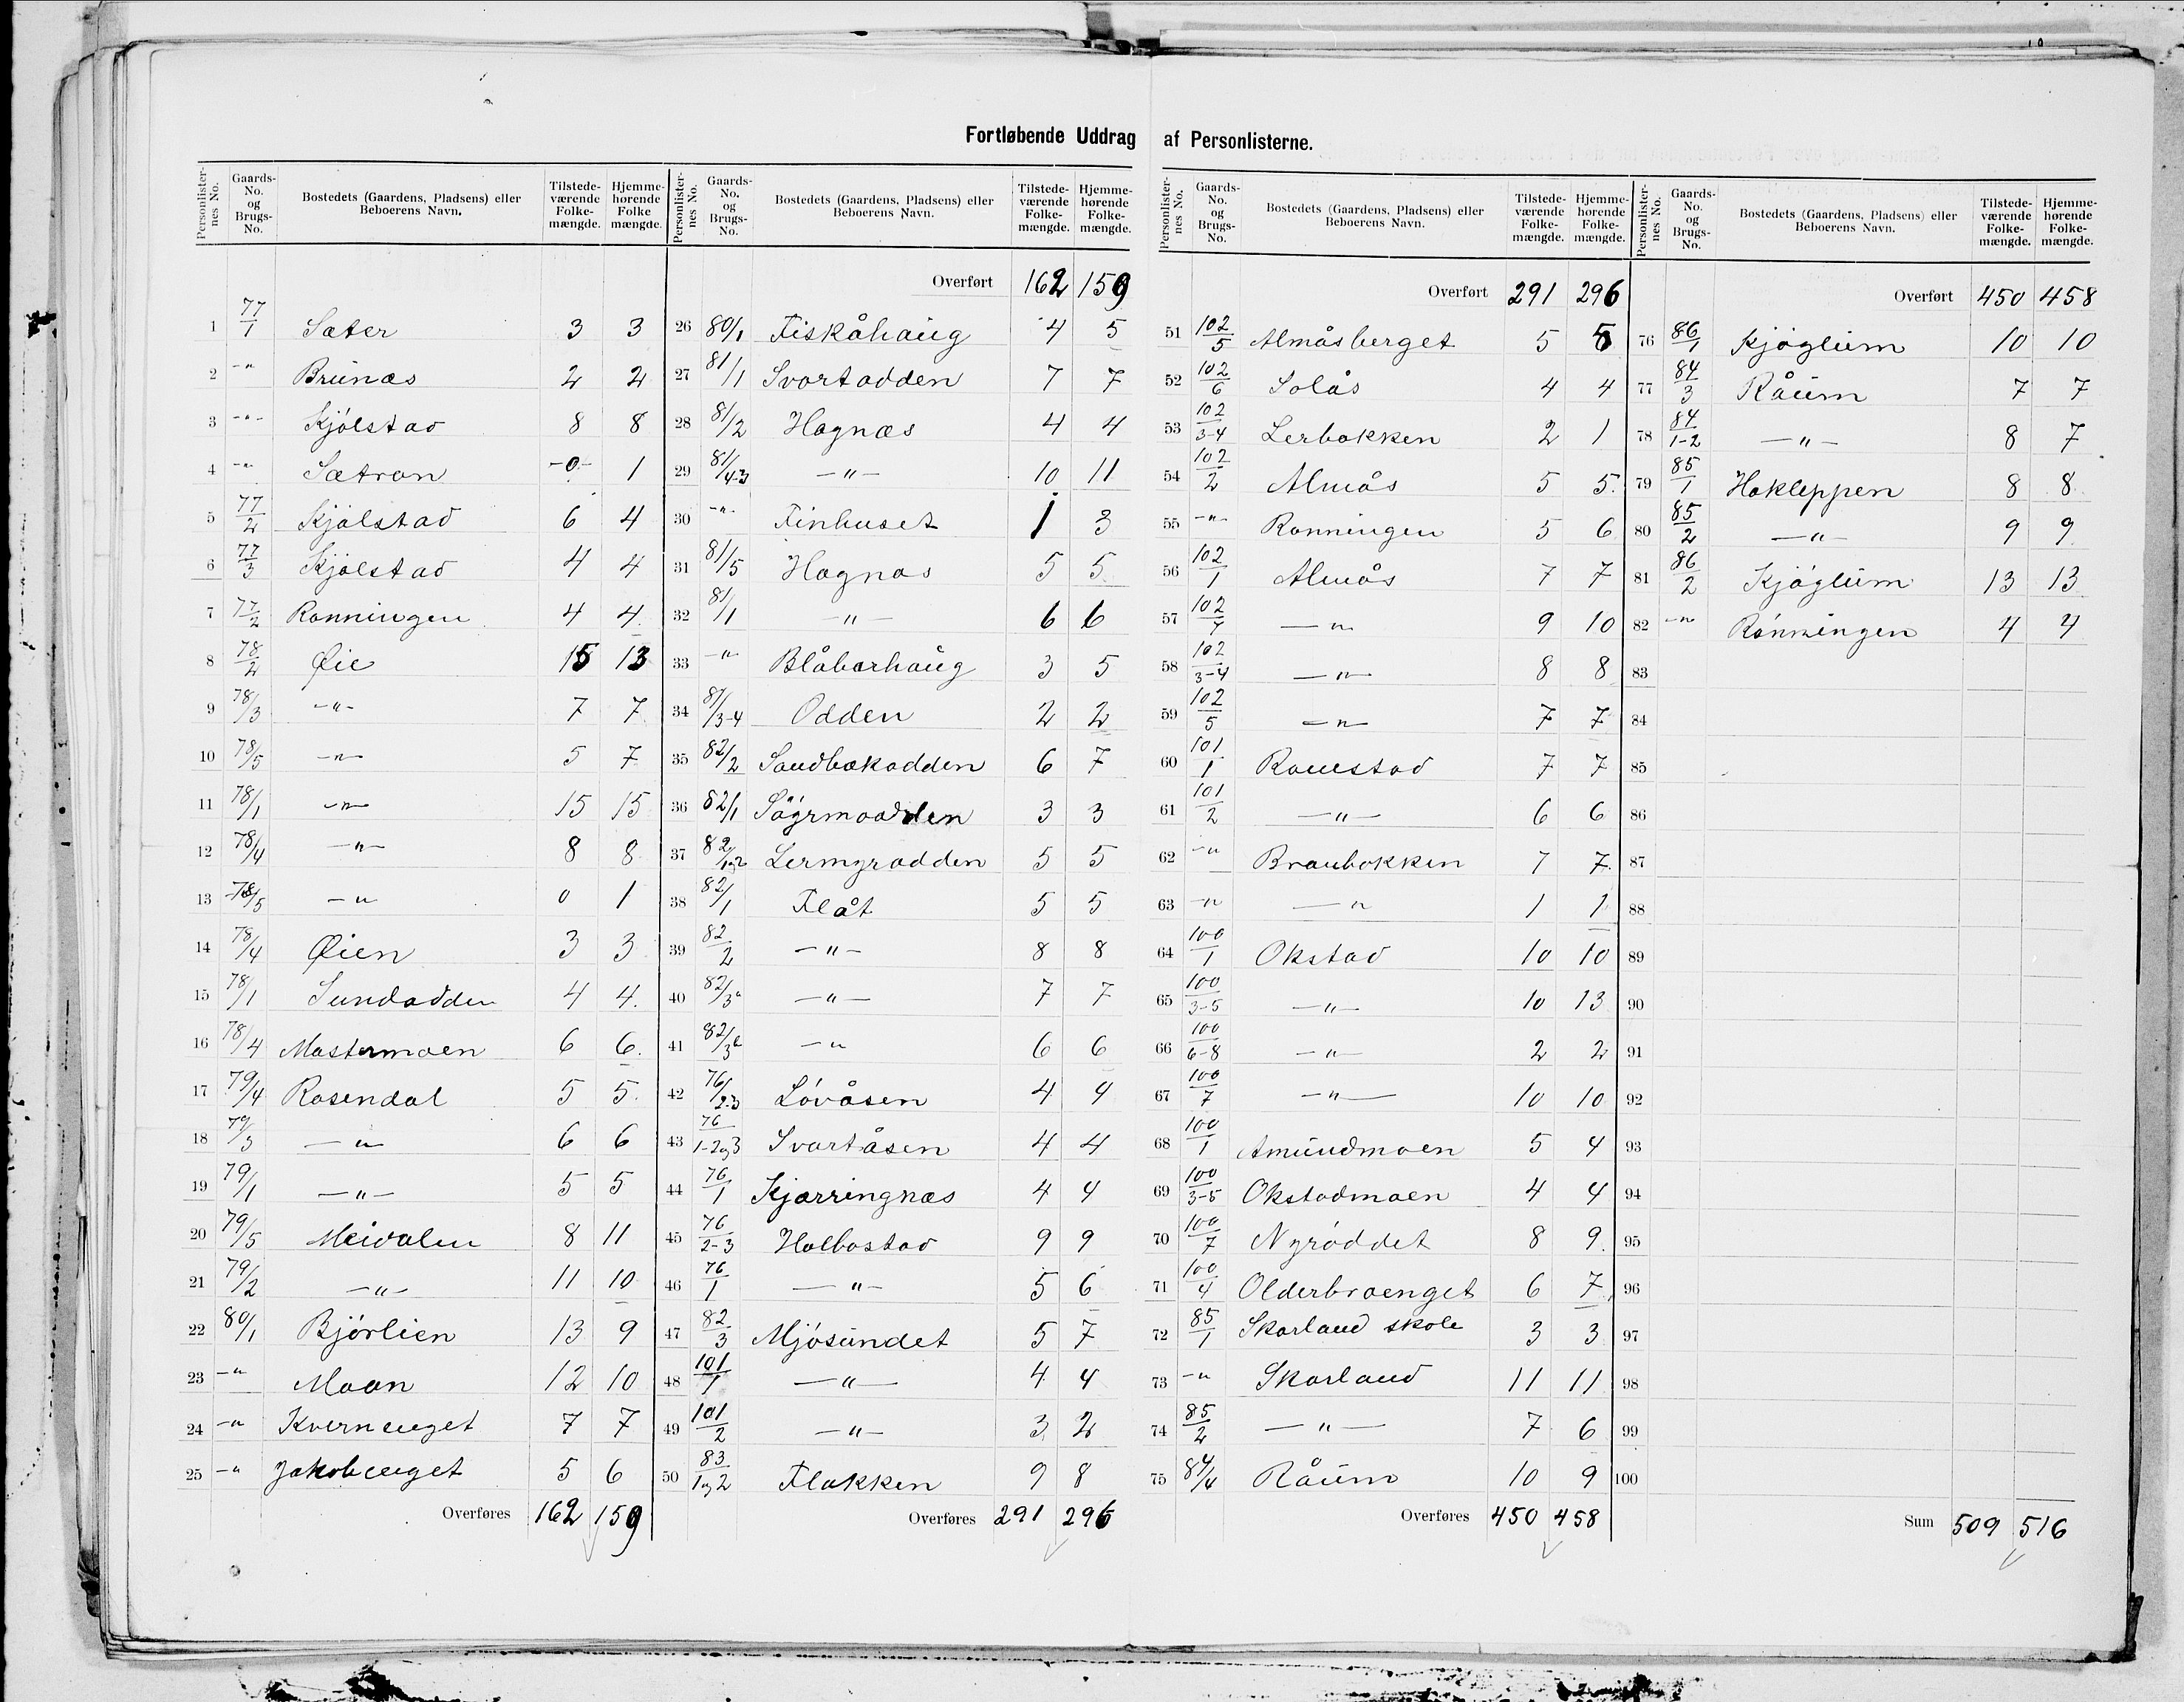 Fortløbende Uddrag af Personlisterne.
Personlisternes No. | Gaards-No. og Brugs-No. | Bostedets (Gaardens, Pladsens) eller Beboerens Navn. | Tilstedeværende Folkemængde. | Hjemmehørende Folkemængde.
1 77/1 Sæter 3 3
2 -"- Brunæs 2 2
3 -"- Kjölstad 8 8
4 -"- Sætran -0- 1
5 77/2 Kjölstad 6 4
6 77/3 Kjölstad 4 4
7 77/2 Rønningen 4 4
8 78/2 Øie 15 13
9 78/3 -"- 7 7
10 78/5 -"- 5 7
11 78/1 -"- 15 15
12 78/4 -"- 8 8
13 78/5 -"- 0 1
14 78/4 Øien 3 3
15 78/1 Sundodden 4 4
16 78/4 Mastermoen 6 6
17 79/4 Rosendal 5 5
18 79/3 -"- 6 6
19 79/1 -"- 5 5
20 79/5 Meivalen 8 11
21 79/2 -"- 11 10
22 80/1 Bjørlien 13 9
23 -"- Moan 12 10
24 -"- Kvernenget 7 7
25 -"- Jakobenget 5 6
Overføres 162 159
Overført 162 159
26 80/1 Fiskåhaug 4 5
27 81/1 Svartodden 7 7
28 81/2 Hognæs 4 4
29 81/4-3 -"- 10 11
30 -"- Finhuset 1 3
31 81/5 Hognæs 5 5
32 81/1 -"- 6 6
33 -"- Blåbærhaug 3 5
34 81/3-4 Odden 2 2
35 82/2 Sandbækodden 6 7
36 82/1 Sögrmoodden 3 3
37 82/1og2 Lermyrodden 5 5
38 82/1 Flåt 5 5
39 82/2 -"- 8 8
40 82/3a -"- 7 7
41 82/3b -"- 6 6
42 76/2-3 Lövåsen 4 4
43 76/1-2og3 Svartåsen 4 4
44 76/1 Kjærringnæs 4 4
45 76/2-3 Halbostad 9 9
46 76/1 -"- 5 6
47 82/3 Mjösundet 5 7
48 101/1 -"- 4 4
49 101/2 -"- 3 2
50 83/1og2 Flakken 9 8
Overføres 291 296
Overført 291 296
51 102/5 Almåsberget 5 5
52 102/6 Solås 4 4
53 102/3-4 Lerbakken 2 1
54 102/2 Almås 5 5
55 -"- Rønningen 5 6
56 102/1 Almås 7 7
57 102/7 -"- 9 10
58 102/3-4 -"- 8 8
59 102/5 -"- 7 7
60 101/1 Ramstad 7 7
61 101/2 -"- 6 6
62 -"- Branbakken 7 7
63 -"- -"- 1 1
64 100/1 Okstad 10 10
65 100/3-5 -"- 10 13
66 100/6-8 -"- 2 2
67 100/7 -"- 10 10
68 100/1 Amundmoen 5 4
69 100/3-5 Okstadmoen 4 4
70 100/7 Nyröddet 8 9
71 100/4 Olderbroenget 6 7
72 85/1 Skarland skole 3 3
73 -"- Skarland 11 11
74 85/2 -"- 7 6
75 84/4 Råum 10 9
Overføres 450 458
Overført 450 458
76 86/1 Kjöglum 10 10
77 84/3 Råum 7 7
78 84/1-2 -"- 8 7
79 85/1 Hakleppen 8 8
80 85/2 -"- 9 9
81 86/2 Kjöglum 13 13
82 -"- Rönningen 4 4
83
84
85
86
87
88
89
90
91
92
93
94
95
96
97
98
99
100
Sum 509 516